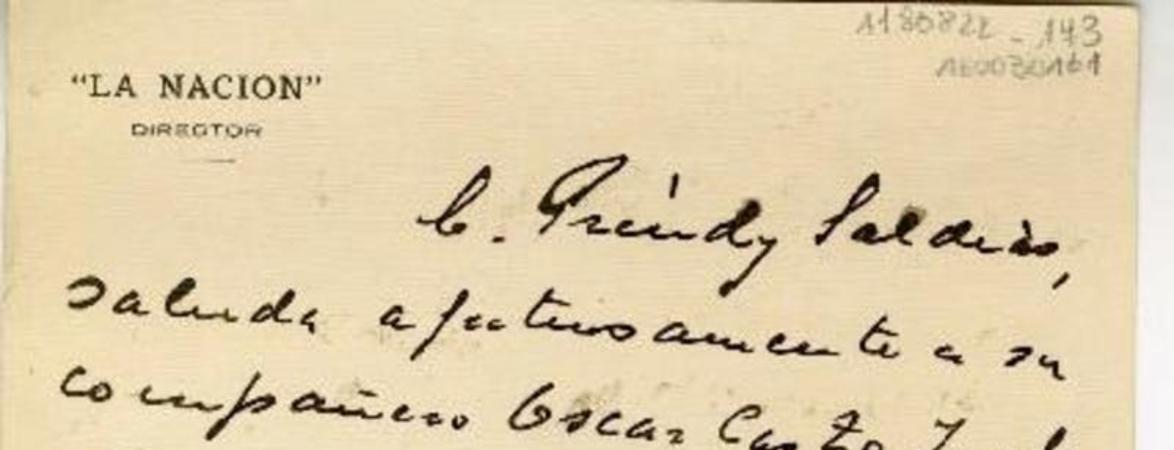 A180822 - 143
"LA NACION"
DIRECTOR
C. Préndy Saldías,
saluda afectuosamente a su
compañero Oscar Castro